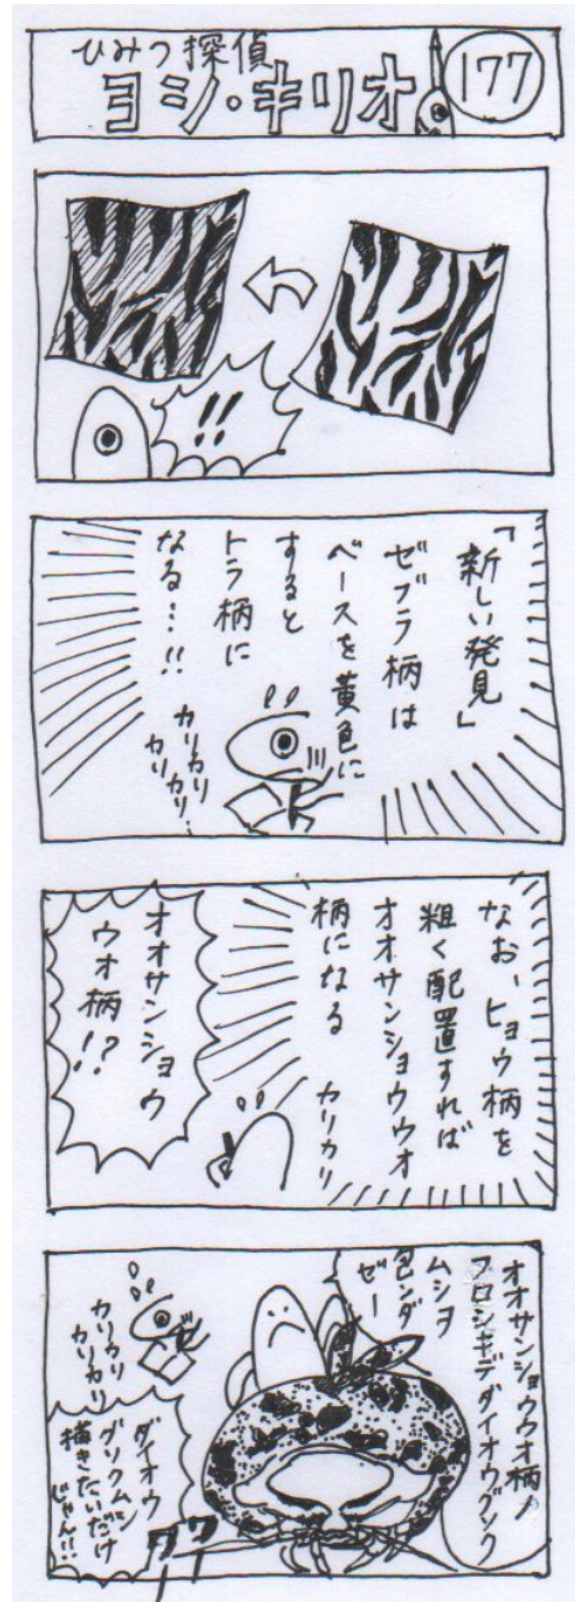 ひみつ探偵
ヨシ・キリオ
177
!!
「新しい発見」
ゼブラ柄は
ベースを黄色に
すると
トラ柄に
なる…!!
カリカリ
カリカリ
なお、ヒョウ柄を
粗く配置すれば
オオサンショウウオ
柄になる
カリカリ
オオサンショウ
ウオ柄!?
オオサンショウウオ柄ノ
フロシキデダイオウグソク
ムシヲ
包ンダ
ゼー
カリカリ
カリカリ
カリカリ
ダイオウ
グソクムシ
描きたいだけ
じゃん!!
ワワ